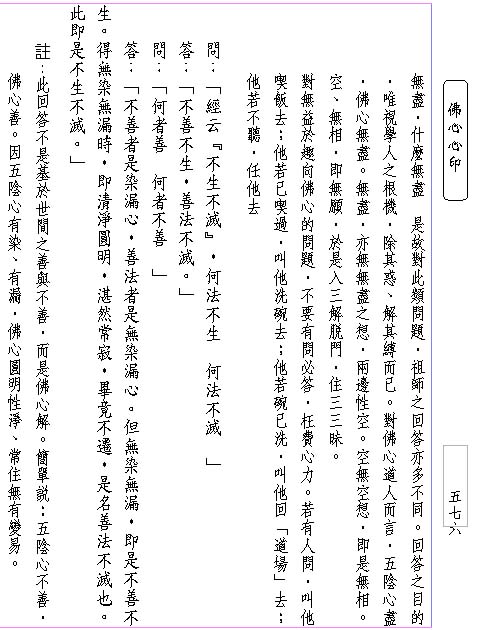 佛心心印
五七六
無盡，什麼無盡　是故對此類問題，祖師之回答亦多不同。回答之目的
，唯視學人之根機，除其惑、解其縛而已。對佛心道人而言，五陰心盡
，佛心無盡。無盡，亦無無盡之想，兩邊性空。空無空想，即是無相。
空、無相，即無願，於是入三解脫門，住三三昧。
對無益於趣向佛心的問題，不要有問必答，枉費心力。若有人問，叫他
喫飯去；他若已喫過，叫他洗碗去；他若碗已洗，叫他回「道場」去；
他若不聽，任他去
問：「經云『不生不滅』，何法不生　何法不滅　」
答：「不善不生，善法不滅。」
問：「何者善　何者不善　」
答：「不善者是染漏心，善法者是無染漏心。但無染無漏，即是不善不
生。得無染無漏時，即清淨圓明，湛然常寂，畢竟不遷，是名善法不滅也。
此即是不生不滅。」
註：此回答不是基於世間之善與不善，而是佛心解。簡單說：五陰心不善，
佛心善。因五陰心有染、有漏，佛心圓明性淨、常住無有變易。